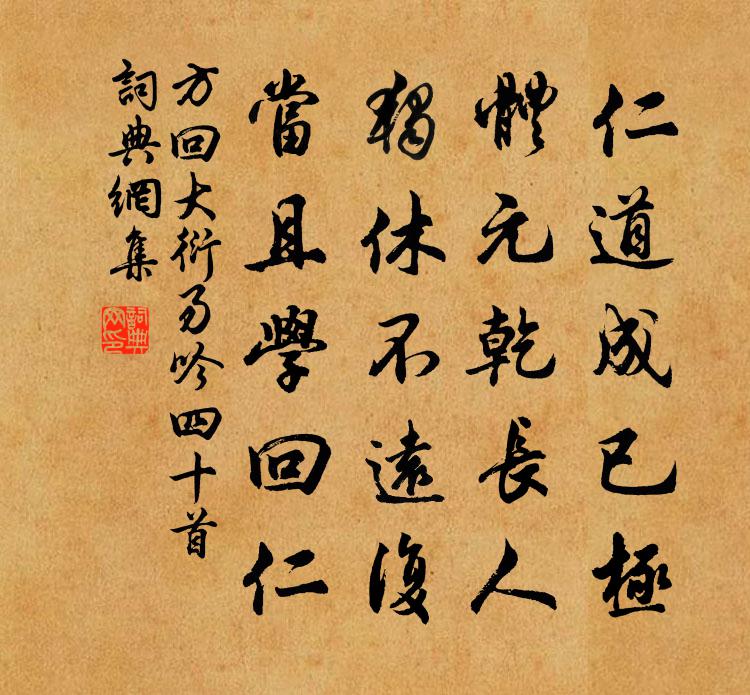 仁道成已極
體元乾長人
獨休不遠復
當且學回仁
方回大衍易吟四十首
詞典網集
詞典網印